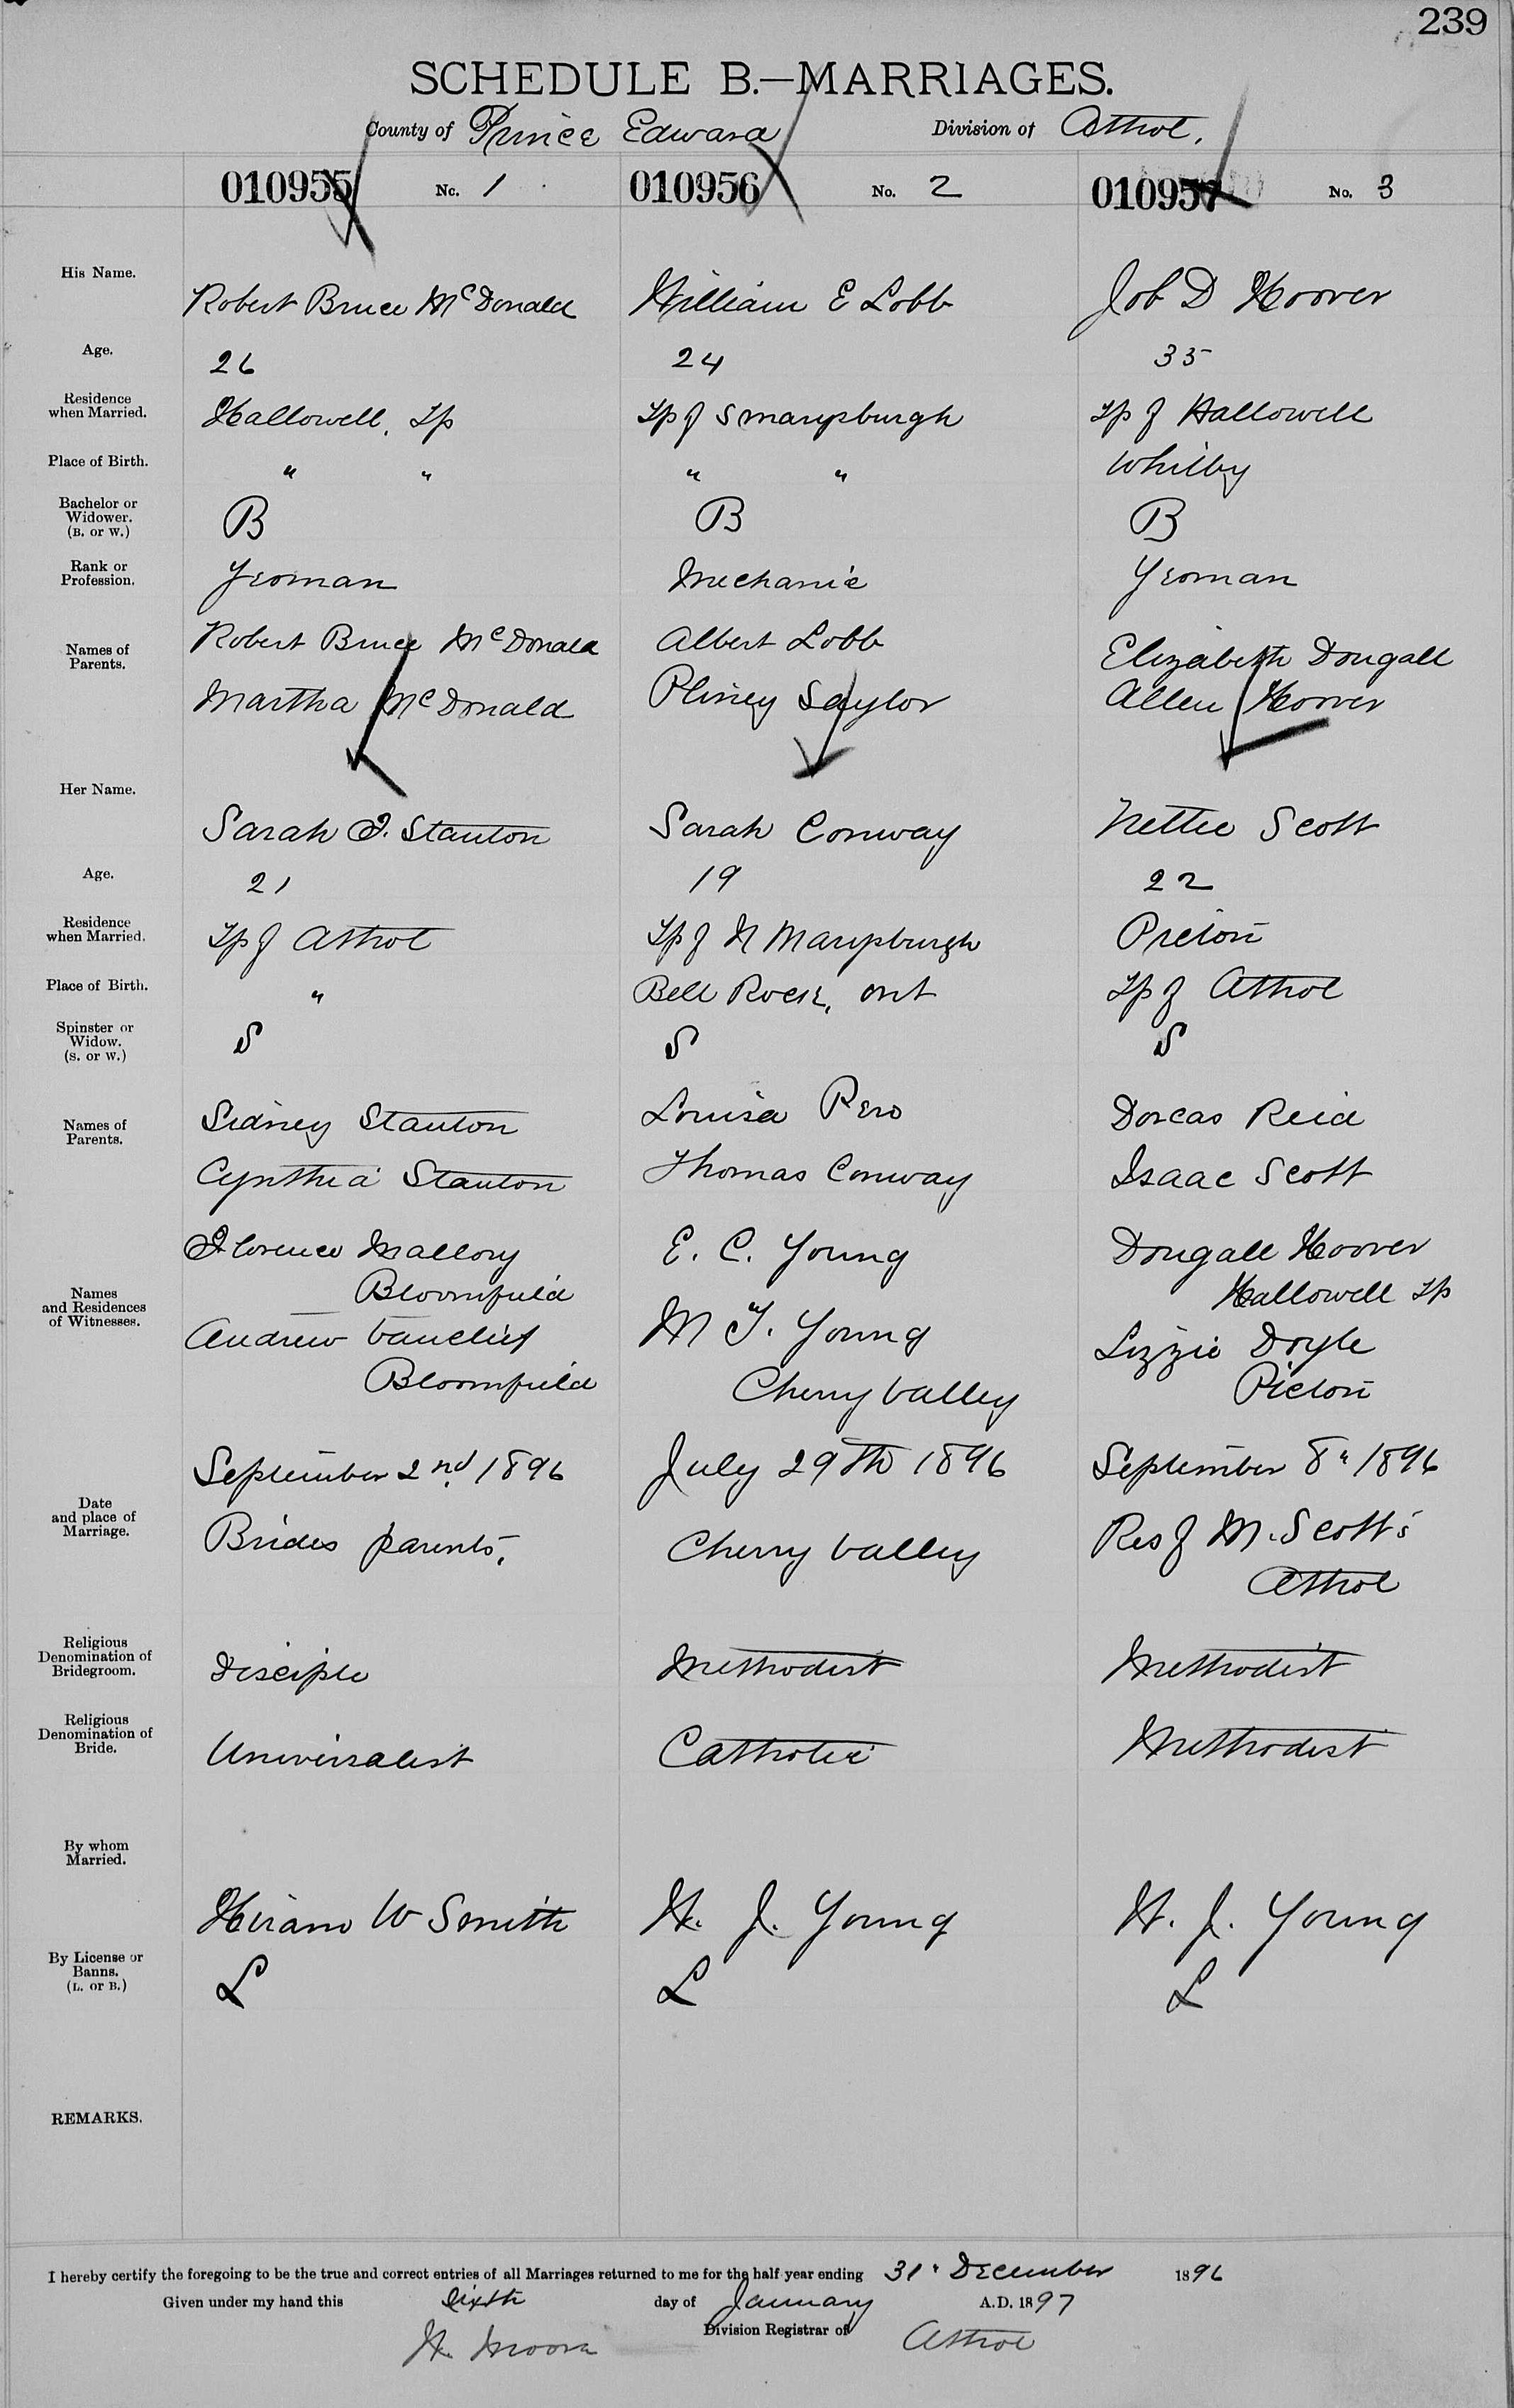 239
SCHEDULE B.—MARRIAGES.
County of Prince Edward Division of Athol.
010955 No. 1 010956 No. 2 010957 No. 3
His Name. Robert Bruce McDonald William E Lobb Job D Hoover
Age. 26 24 35
Residence when Married. Hallowell, Tp Tp of S Marysburgh Tp of Hallowell
Place of Birth. " " " " Whitby
Bachelor or Widower. (B. or W.) B B B
Rank or Profession. Yeoman Mechanic Yeoman
Names of Parents. Robert Bruce McDonald Albert Lobb Elizabeth Dougall
Martha McDonald Pliney Saylor Allen Hoover
Her Name. Sarah J. Stanton Sarah Conway Nettie Scott
Age. 21 19 22
Residence when Married. Tp of Athol Tp of N Marysburgh Picton
Place of Birth. " Bell Rock, Ont Tp of Athol
Spinster or Widow. (S. or W.) S S S
Names of Parents. Sidney Stanton Louisa Pero Dorcas Reid
Cynthia Stanton Thomas Conway Isaac Scott
Names and Residences of Witnesses. Florence Mallory E. C. Young Dougall Hoover
Bloomfield Hallowell Tp
Andrew Vanclief M Y. Young Lizzie Doyle
Bloomfield Cherry Valley Picton
Date and place of Marriage. September 2nd 1896 July 29th 1896 September 8" 1896
Brides parents. Cherry Valley Res of M. Scott's
Athol
Religious Denomination of Bridegroom. Disciple Methodist Methodist
Religious Denomination of Bride. Universalist Catholic Methodist
By whom Married. Hiram W Smith H. J. Young H. J. Young
By License or Banns. (L. or B.) L L L
REMARKS.
I hereby certify the foregoing to be the true and correct entries of all Marriages returned to me for the half year ending 31" December 1896
Given under my hand this sixth day of January A.D. 1897
H. Moore Division Registrar of Athol